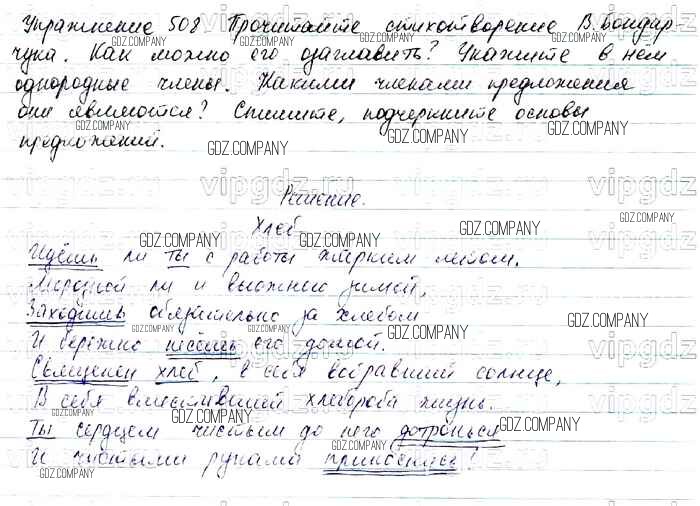 Упражнение 508 Прочитайте стихотворение В. Бондар
чука. Как можно его озаглавить? Укажите в нём
однородные члены. Какими членами предложения
они являются? Спишите, подчеркните основы
предложений.
Решение.
Хлеб
Идёшь ли ты с работы жарким летом.
Морозной ли и вьюжною зимой,
Заходишь обязательно за хлебом
И бережно несёшь его домой.
Священен хлеб, в себя вобравший солнце,
В себя вместивший хлебороба жизнь.
Ты сердцем чистым до него дотронься
И чистыми руками прикоснись!
GDZ.COMPANY
vipgdz
vipgdz.ru